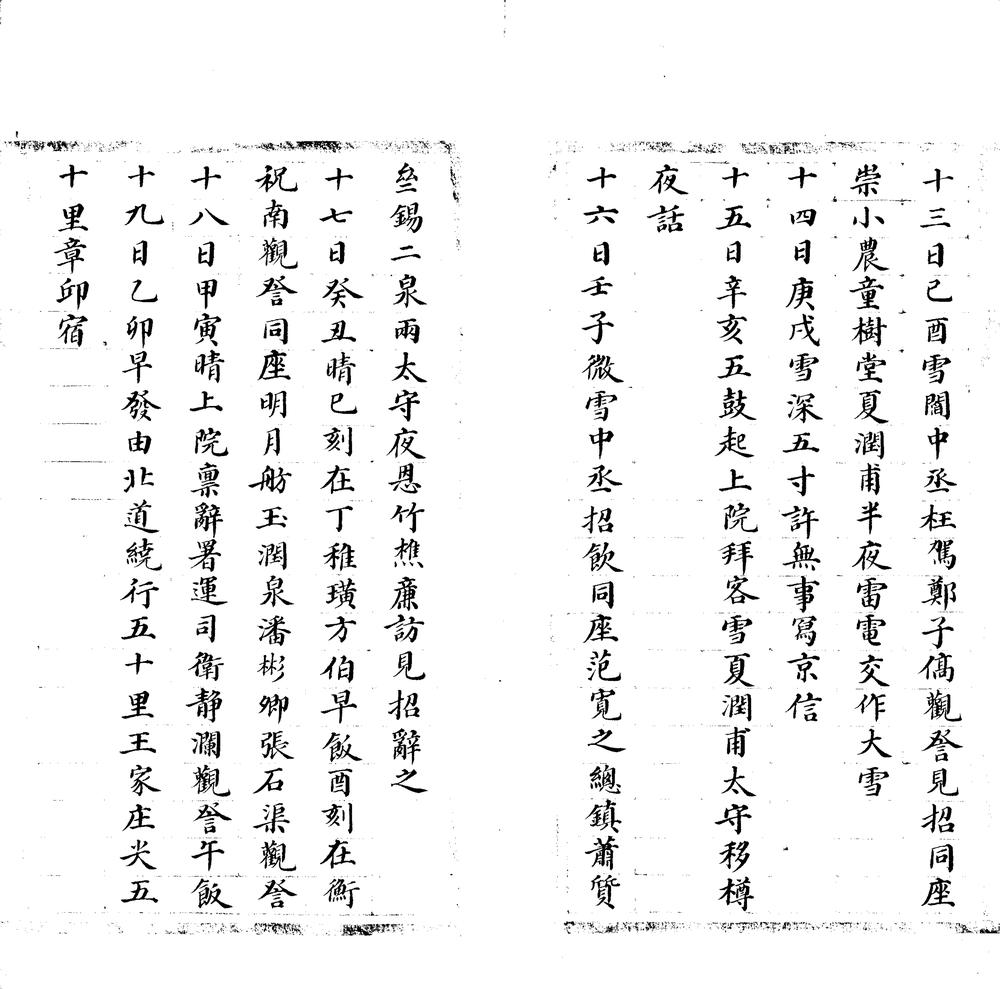 十三日己酉雪閻中丞枉駕鄭子僑觀詧見招同座
崇小農童樹堂夏潤甫半夜雷電交作大雪
十四日庚戌雪深五寸許無事寫京信
十五日辛亥五鼓起上院拜客雪夏潤甫太守移樽
夜話
十六日壬子微雪中丞招飲同座范寬之總鎮蕭質
垒錫二泉兩太守夜恩竹樵廉訪見招辭之
十七日癸丑晴巳刻在丁稚璜方伯早飯酉刻在衡
祝南觀詧同座明月舫玉潤泉潘彬卿張石渠觀詧
十八日甲寅晴上院稟辭署運司衛靜瀾觀詧午飯
十九日乙卯早發由北道繞行五十里王家庄尖五
十里章邱宿